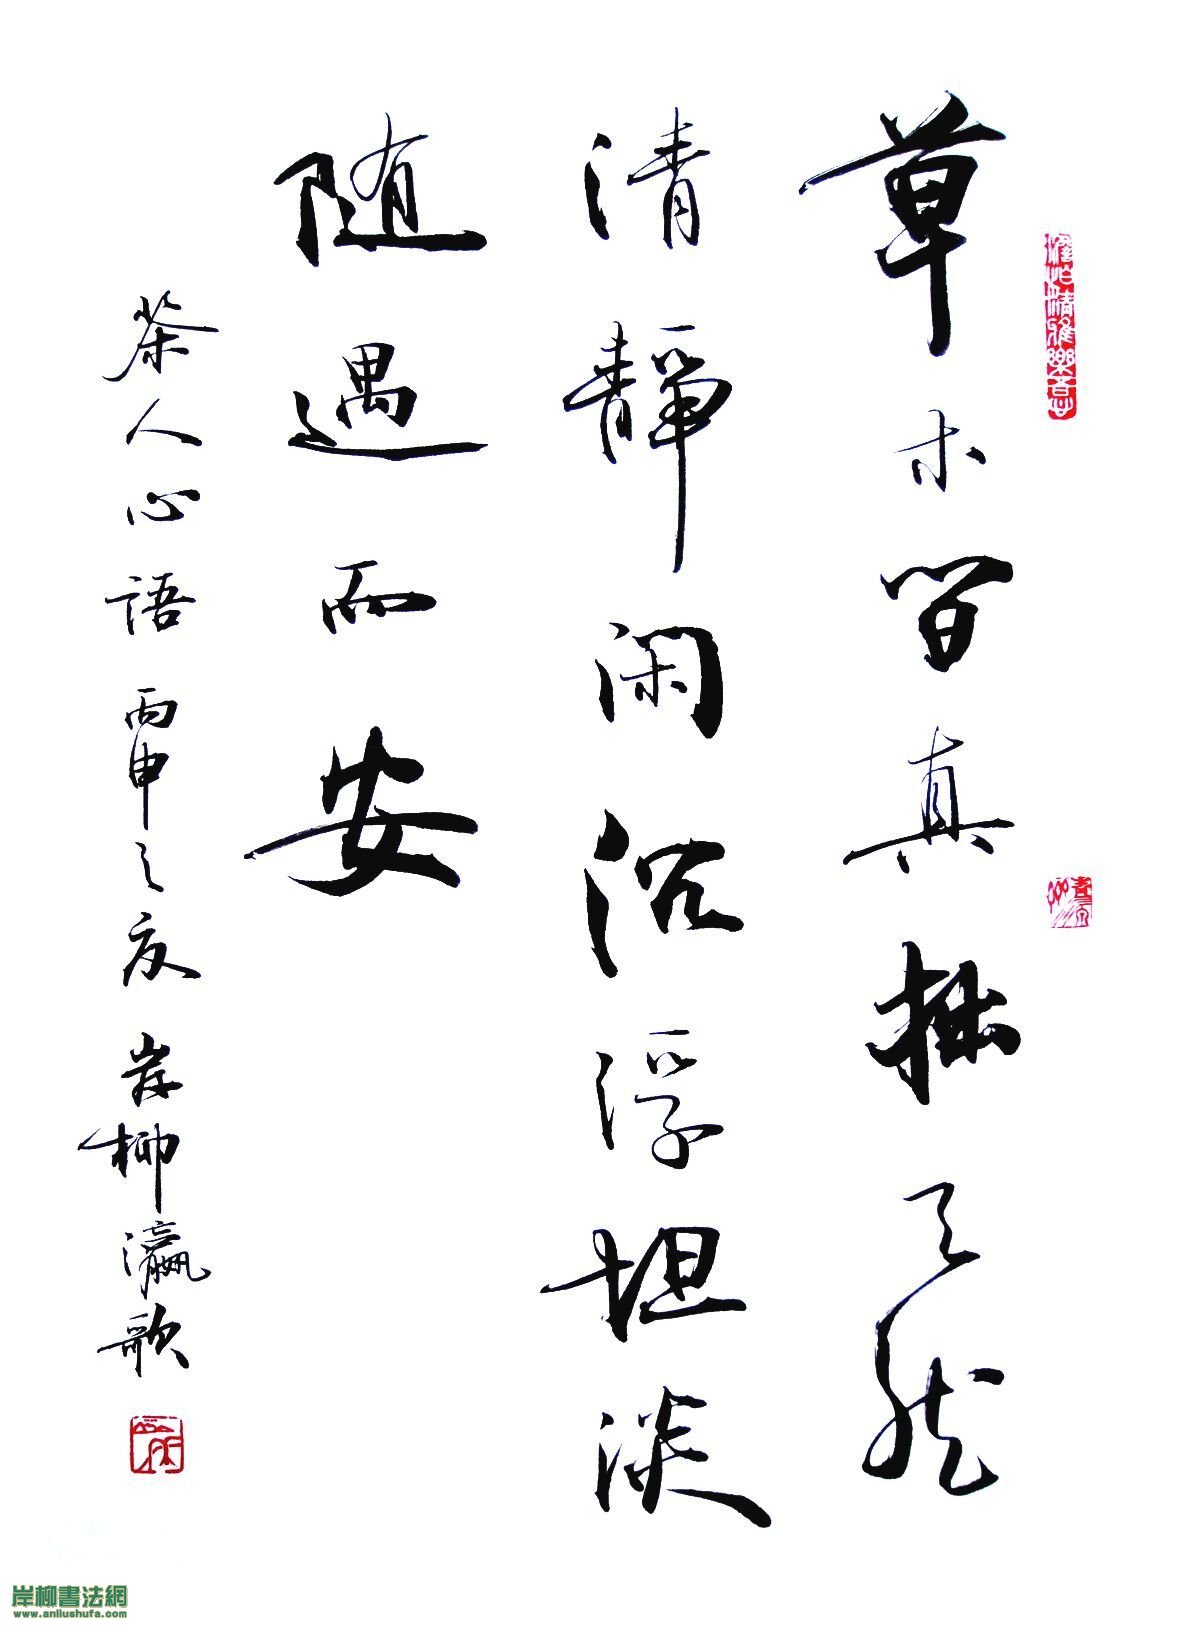 草木间真拙天然
清靜闲沉浮坦淡
随遇而安
茶人心語 丙申之夏 岸柳瀛歌
岸柳書法網
www.anliushufa.com